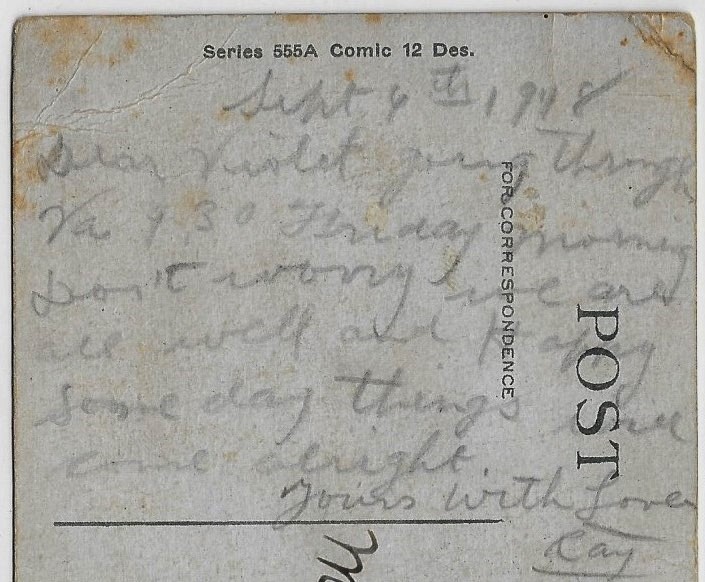 Series 555A Comic 12 Des.
Sept 6th, 1918
Dear Violet going through
Va 9.3 Friday morning
Don't worry we are
all well and Happy
some day things will
come alright.
Yours With Love
Ray
FOR CORRESPONDENCE
POST